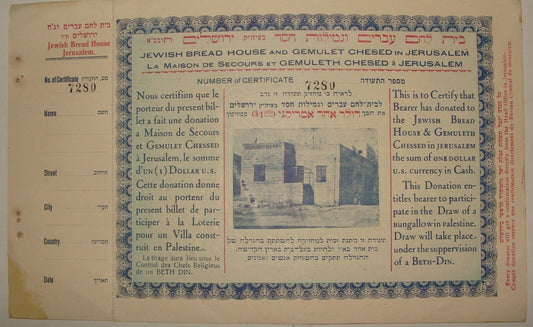 בית לחם עברים וג״ח
ירושלים
Jewish Bread House
Jerusalem.
No. of Certificate
7280
Name
השם
Street
הרחוב
City
העיר
Country
המדינה
Date
תאריך
בית לחם עברים וגמילות חסד בעיה״ק ירושלים
JEWISH BREAD HOUSE AND GEMULET CHESED IN JERUSALEM
LA MAISON DE SECOURS ET GEMULETH CHESED À JERUSALEM
NUMBER OF CERTIFICATE 7280 מספר התעודה
Nous certifion que le
porteur du present bil-
let a fait une donation
a Maison de Secours
et GEMULET CHESSED
à Jerusalem, le somme
d'un (1) DOLLAR U.S.
Cette donation donne
droit au porteur du
present billet de par-
ticiper à la Loterie
pour un Villa constr-
uit en Palestine.
Le tirage aura lieu sous le
Control des Chefs Religieux
de un BETH DIN.
לראיה כי מחזיק תעודה זו נדב
לבית־לחם עברים וגמילות חסד בעיה״ק ירושלים
את הסך דולר אחד אמריקני ($1) במזומן
תעודה זו נותנת זכות למחזיקה להשתתף בהגרלה של
בית אחד
This is to Certify that
Bearer has donated to
the JEWISH BREAD
HOUSE & GEMULETH
CHESSED in JERUSALEM
the sum of ONE DOLLAR
U.S. currency in Cash.
This Donation en-
titles bearer to partici-
pate in the Draw of a
Bungallow in palestine.
Draw will take place
under the suppervision
of a BETH-DIN.
Every donator will get a confirmation directly from the Head Office in Jerusalem.
Chaque donateur recevra une confirmation directement du Bureau Central de Jérusalem